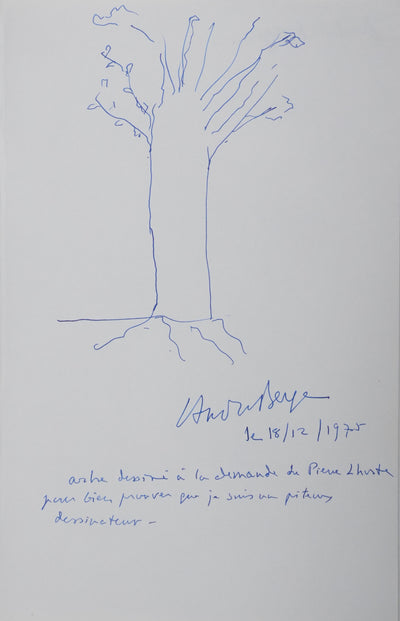 le 18/12/1975
arbre dessiné à la demande de Pierre Lhoste
pour bien prouver que je suis un piteux
dessinateur –